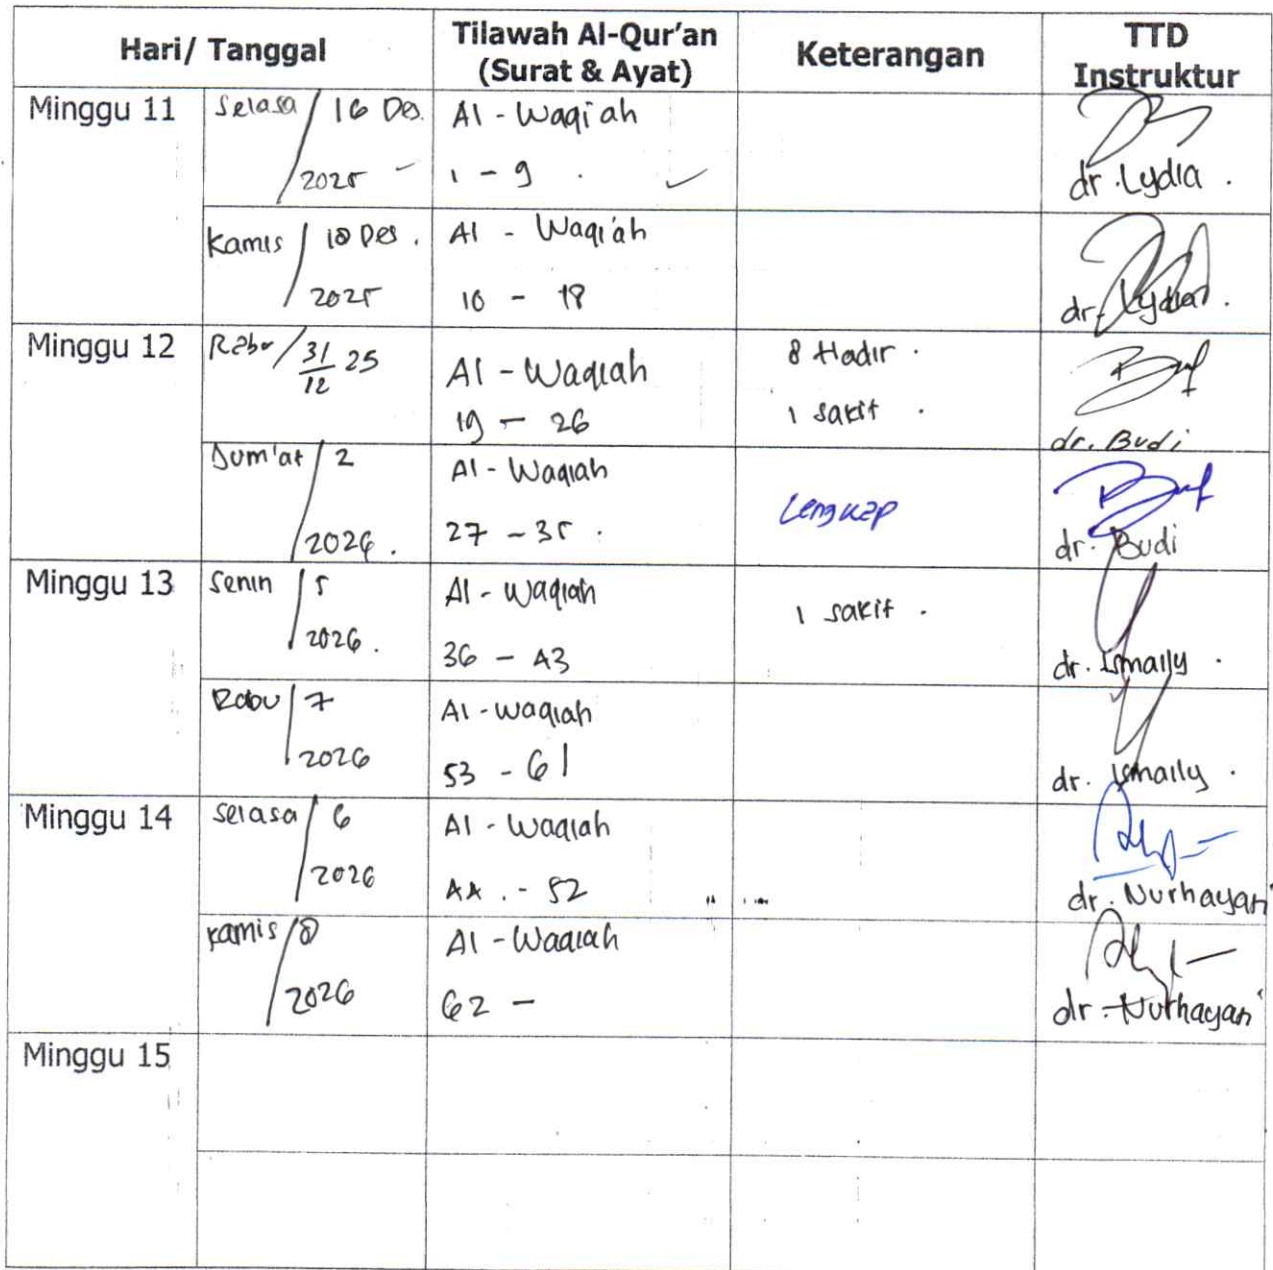 Hari/ Tanggal
Tilawah Al-Qur'an
(Surat & Ayat)
Keterangan
TTD
Instruktur
Minggu 11
Selasa / 16 Des.
2025
Al - Waqi'ah
1 - 9 .
dr. Lydia .
Kamis / 18 Des .
2025
Al - Waqi'ah
10 - 18
dr. Lydia .
Minggu 12
Rabu / 31/12 25
Al - Waqiah
19 - 26
8 Hadir .
1 sakit .
dr. Budi
Jum'at / 2
2026 .
Al - Waqiah
27 - 35 .
Lengkap
dr. Budi
Minggu 13
Senin / 5
2026 .
Al - Waqiah
36 - 43
1 sakit .
dr. Ismaily .
Rabu / 7
2026
Al - Waqiah
53 - 61
dr. Ismaily .
Minggu 14
Selasa / 6
2026
Al - Waqiah
44 . - 52
dr. Nurhayati
Kamis / 8
2026
Al - Waqiah
62 -
dr. Nurhayati
Minggu 15